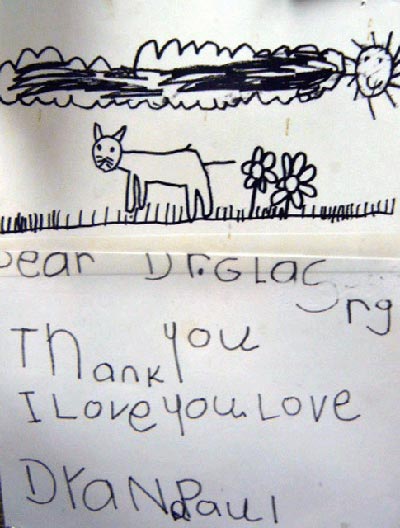 Dear Dr.GLas
rng
Thank you
I Love you. Love
DYaN Paul